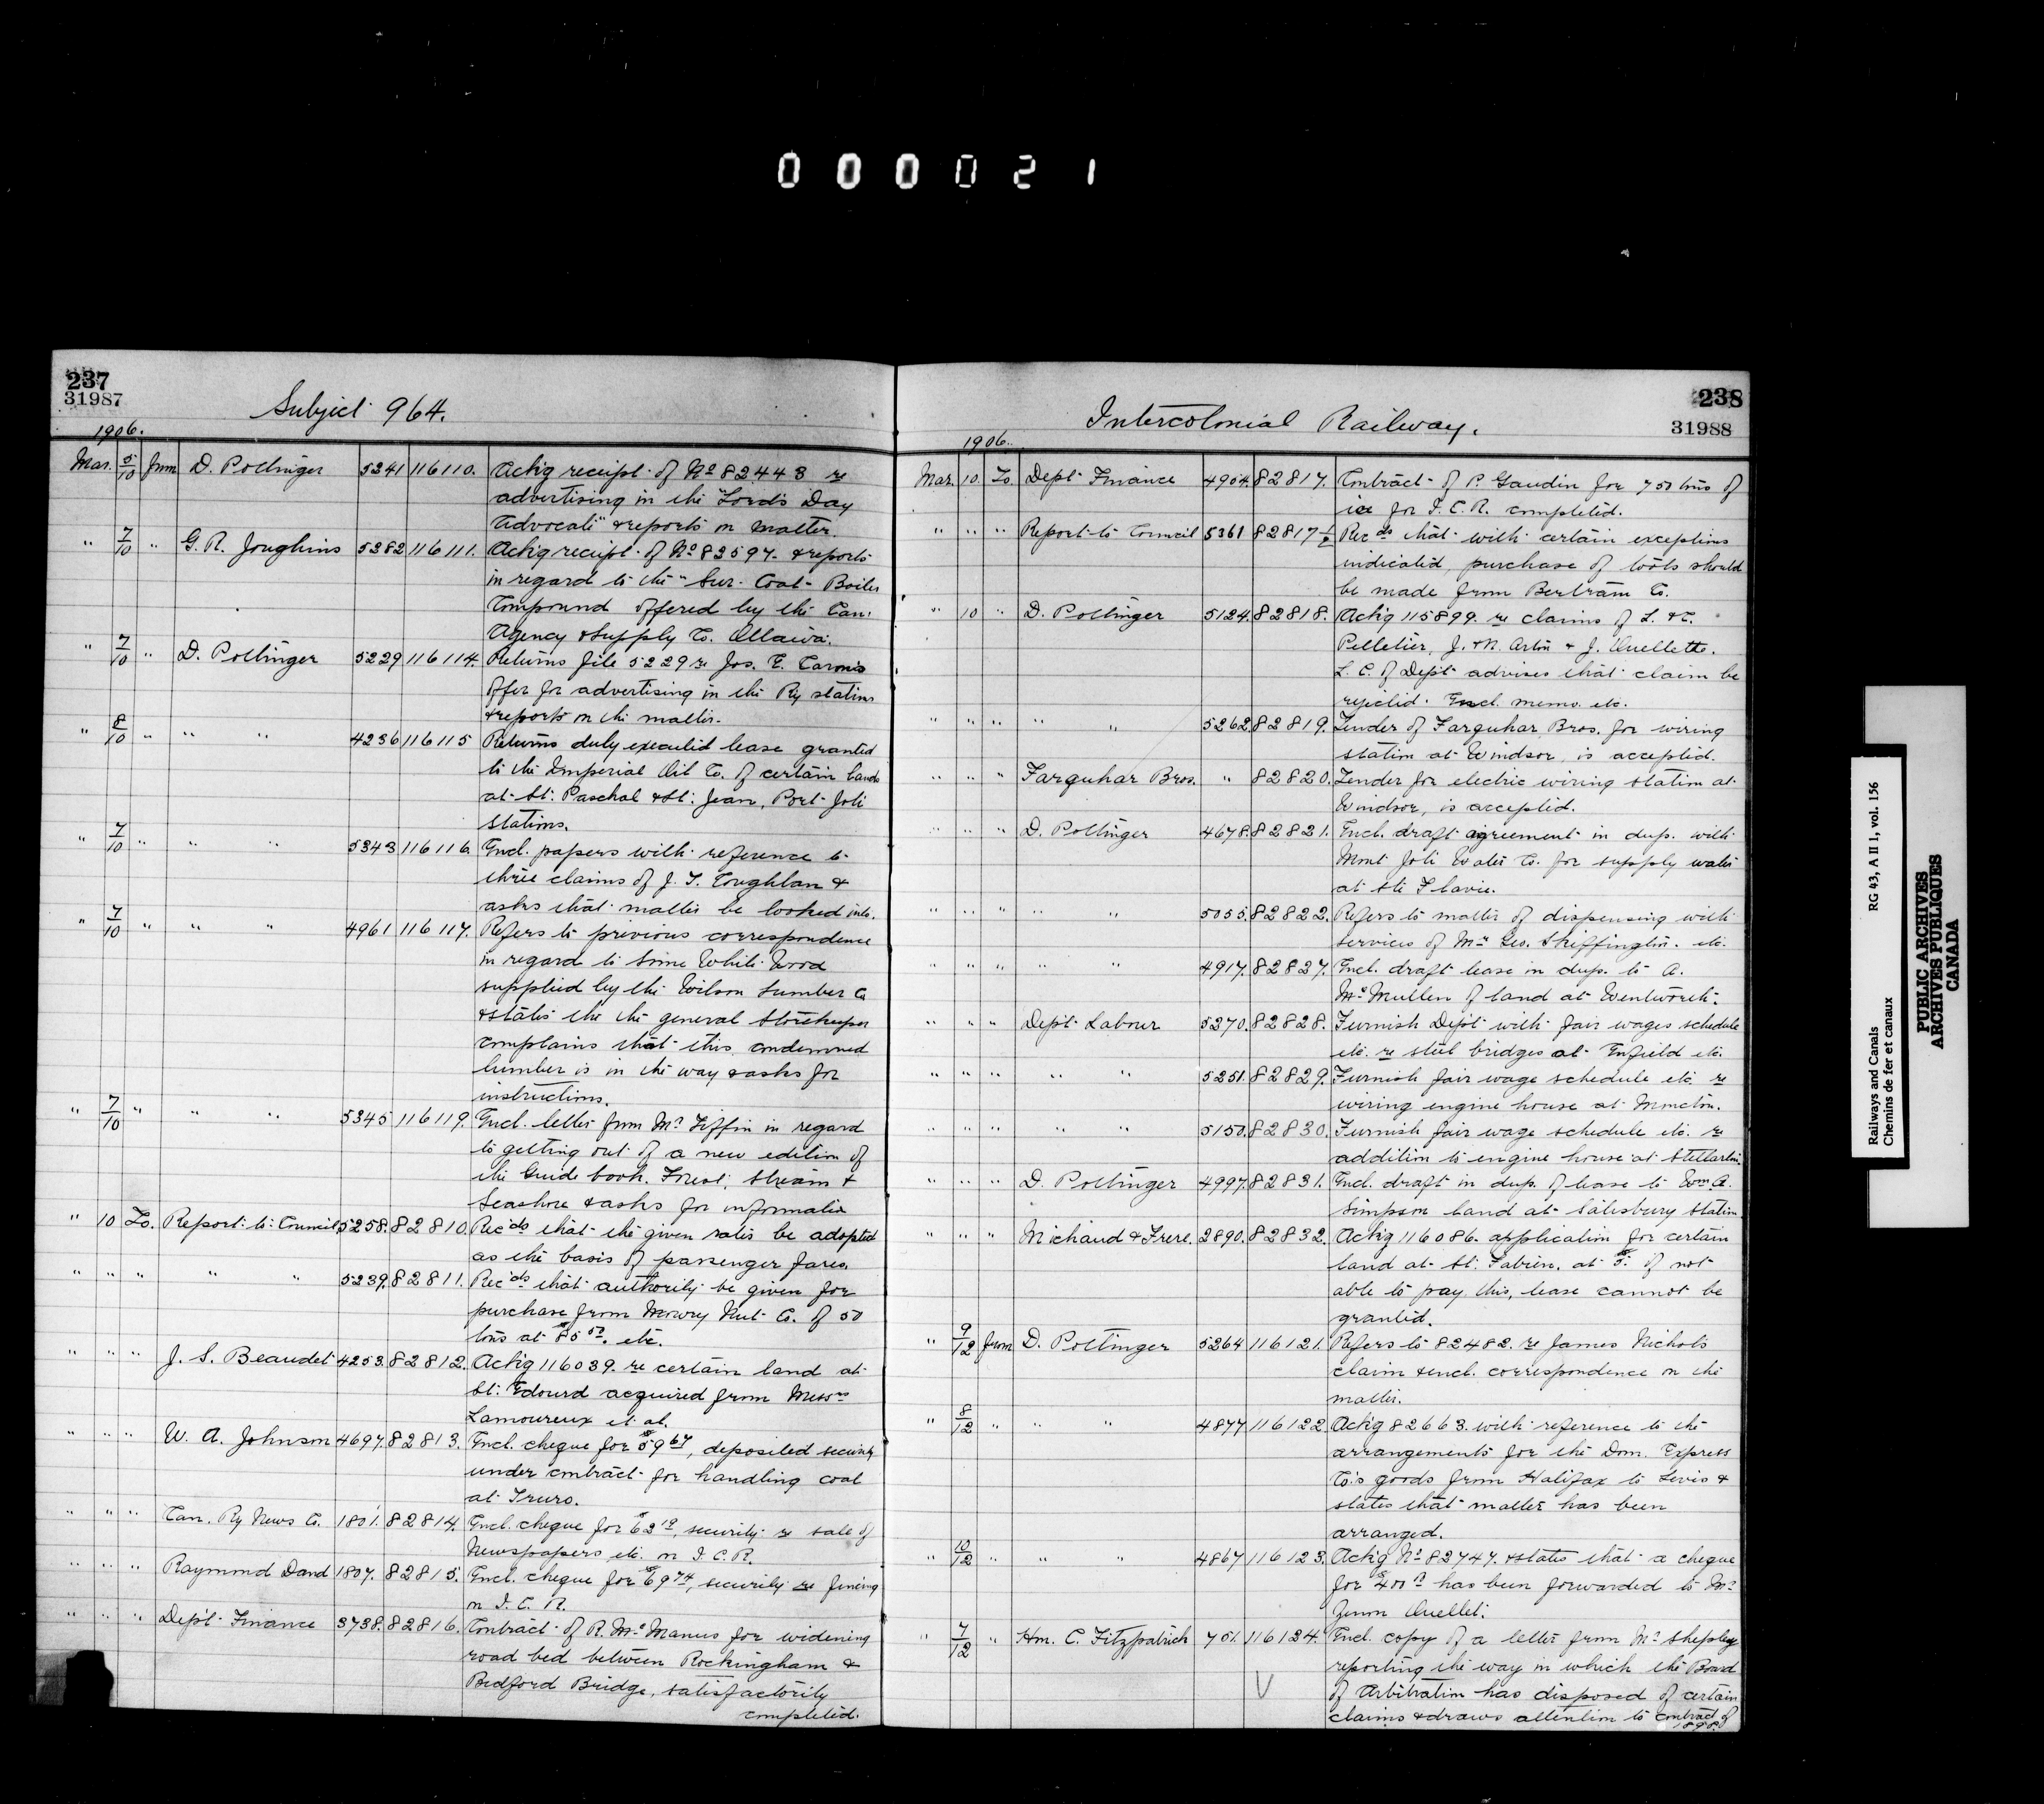 000021
237
31987
Subject 964.
1906.
Mar. 5/10 from D. Pottinger 5241 116110. Ack'g receipt of No 82443 re
advertising in the "Lord's Day
Advocate" & reports on matter.
" 7/10 " G. R. Joughins 5282 116111. Ack'g receipt of No 82597. & reports
in regard to the "Sur-Coat-Boiler
Compound offered by the Can.
Agency & Supply Co. Ottawa.
" 7/10 " D. Pottinger 5229 116114. Returns file 5229 re Jos. E. Caron's
offer for advertising in the Ry stations
& reports on the matter.
" 8/10 " " " 4236 116115 Returns duly executed lease granted
to the Imperial Oil Co. of certain lands
at St. Paschal & St. Jean, Port Joli
stations.
" 7/10 " " " 5343 116116. Encl. papers with reference to
three claims of J. T. Coughlan &
asks that matter be looked into.
" 7/10 " " " 4961 116117. Refers to previous correspondence
in regard to some White Wood
supplied by the Wilson Lumber Co
& states the the general Storekeeper
complains that this condemned
lumber is in the way & asks for
instructions.
" 7/10 " " " 5345 116119. Encl. letter from Mr Tiffin in regard
to getting out of a new edition of
the Guide book. Forest, Stream &
Seashore & asks for information
" 10 To. Report to Council 5258. 82810. Rec'ds that the given rates be adopted
as the basis of passenger fares.
" " " " " 5239. 82811. Rec'ds that authority be given for
purchase from Mowry Nut Co. of 50
tons at $85 50. etc.
" " " J. S. Beaudet 4253. 82812. Ack'g 116039. re certain land at
St. Edourd acquired from Messrs
Lamoureux et al.
" " " W. A. Johnson 4697. 82813. Encl. cheque for $59 67, deposited security
under contract for handling coal
at Truro.
" " " Can. Ry News Co. 1801. 82814. Encl. cheque for $62 19, security re sale of
Newspapers etc. on I. C. R.
" " " Raymond Dand 1807. 82815. Encl. cheque for $69 74, security re fencing
on I. C. R.
" " " Dep't Finance 3738. 82816. Contract of R. McManus for widening
road bed between Rockingham &
Bedford Bridge, satisfactorily
completed.
238
31988
Intercolonial Railway.
1906.
Mar. 10. To. Dept Finance 4904. 82817. Contract of P. Gaudin for 750 tons of
ice for I. C. R. completed.
" " " Report to Council 5361 82817-½ Rec'ds that with certain exceptions
indicated, purchase of tools should
be made from Bertram Co.
" 10 " D. Pottinger 5124. 82818. Ack'g 115899. re claims of L. & C.
Pelletier, J. & N. & J. Ouellette.
L. C. of Dept advises that claim be
rejected. Encl. memo. etc.
" " " " " 5262. 82819. Tender of Farquhar Bros. for wiring
station at Windsor, is accepted.
" " " Farquhar Bros. " 82820. Tender for electric wiring station at
Windsor, is accepted.
" " " D. Pottinger 4678. 82821. Encl. draft agreement in dup. with
Mont Joli Water Co. for supply water
at Ste Flavie.
" " " " " 5055. 82822. Refers to matter of dispensing with
services of Mr Geo. Skiffington. etc.
" " " " " 4917. 82827. Encl. draft lease in dup. to A.
McMullen of land at Wentworth.
" " " Dept Labour 5270. 82828. Furnish Dept with fair wages schedule
etc. re steel bridges at Enfield etc.
" " " " " 5251. 82829. Furnish fair wage schedule etc. re
wiring engine house at Moncton.
" " " " " 5150. 82830. Furnish fair wage schedule etc. re
addition to engine house at Stellarton.
" " " D. Pottinger 4997. 82831. Encl. draft in dup. of lease to Wm A.
Simpson land at Salisbury Station.
" " " Michaud & Frere. 2890. 82832. Ack'g 116086. application for certain
land at St. Fabien, at $5. if not
able to pay this, lease cannot be
granted.
" 9/12 from D. Pottinger 5264 116121. Refers to 82482. re James Nichols
claim & encl. correspondence on the
matter.
" 8/12 " " " 4877 116122 Ack'g 82663. with reference to the
arrangements for the Dom. Express
Co's goods from Halifax to Levis &
states that matter has been
arranged.
" 10/12 " " " 4867 116123. Ack'g No 82747. & states that a cheque
for $400 has been forwarded to Mr
Zenon Ouellet.
" 7/12 " Hon. C. Fitzpatrick 701. 116124. Encl. copy of a letter from Mr Shepley
reporting the way in which the Board
of Arbitration has disposed of certain
claims & draws attention to contract of
1898.
Railways and Canals RG 43, A II 1, vol. 156
Chemins de fer et canaux
PUBLIC ARCHIVES
ARCHIVES PUBLIQUES
CANADA